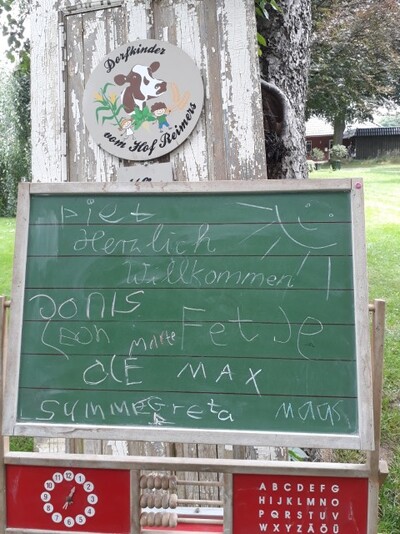 Dorfkinder
vom Hof Reimers
Piet
Herzlich
Willkommen!
JONIS
Leon Marte Fetje
OLE MAX
Greta
12 1 2 3 4 5 6 7 8 9 10 11
A B C D E F G
H I J K L M N O
P Q R S T U V
W X Y Z Ä Ö Ü